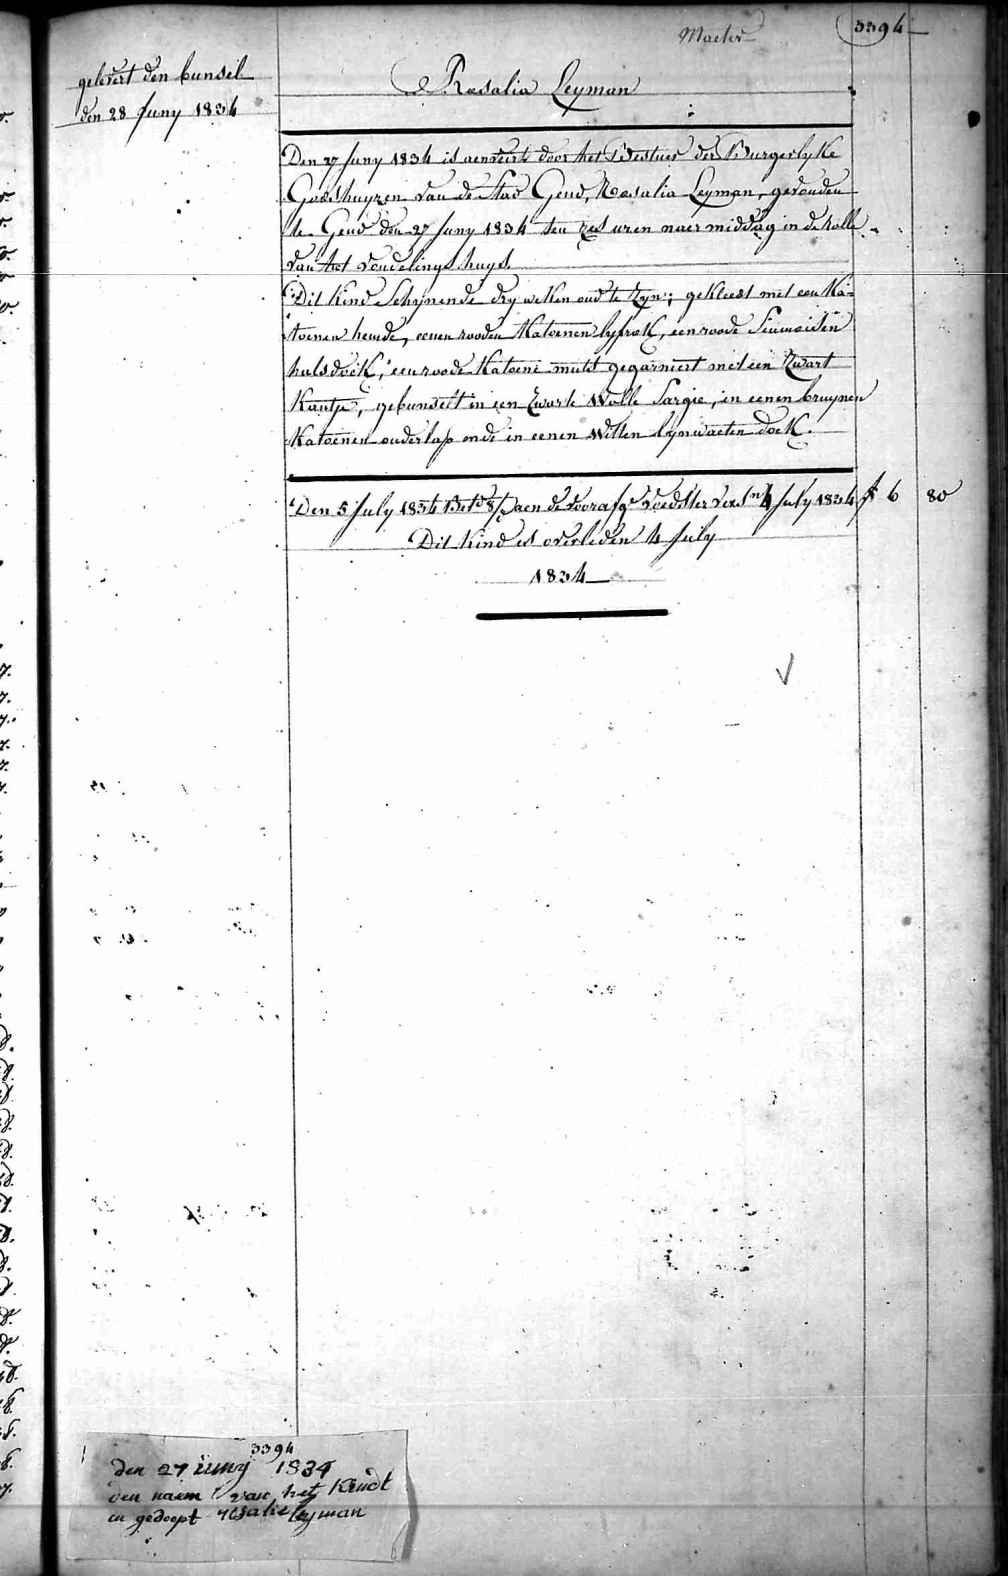 Maeter
3394
gelevert den bunsel
den 28 Juny 1834
Rosalia Leyman
Den 27 Juny 1834 is aenveirt door het Bestuer der Burgerlyke
Godshuyzen van de Stad Gend, Rosalia Leyman, gevonden
te Gend den 27 Juny 1834 ten zes uren naer middag in de rolle
van het vondelings huys.
Dit Kind Schynende dry weken oud te zyn; gekleest met een Ka-
toenen hemde, eenen rooden Katoenen lyfrok, een roode
halsdoek, een roode Katoene muts gegarniert met een Zwart
Kantje, gebunselt in een Zwarte Wolle Sargie, in eenen bruynen
Katoenen onderlap ende in eenen Witten lynwaeten doek.
Den 5 July 1834 aen de voorafg voedster 4 July 1834 f 6 80
Dit Kind is overleden 4 July
1834
3394
den 27 iuny 1834
den naem van het Kindt
en gedoopt rosalie leyman